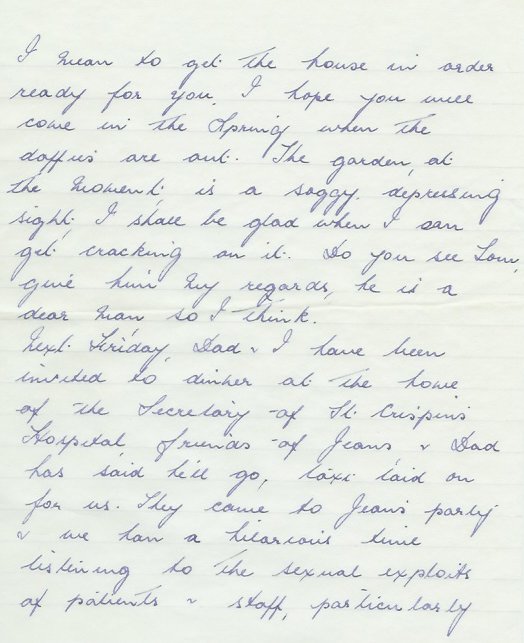 I mean to get the house in order
ready for you, I hope you will
come in the Spring, when the
daffies are out. The garden, at
the moment, is a soggy, depressing
sight, I shall be glad when I can
get cracking on it. Do you see Tom,
give him my regards, he is a
dear man so I think.
Next Friday, Dad & I have been
invited to dinner at the home
of the Secretary of St. Crispins
Hospital, friends of Jeans, & Dad
has said he'll go, taxi laid on
for us. They came to Jeans party
& we had a hilarious time
listening to the sexual exploits
of patients & staff, particularly